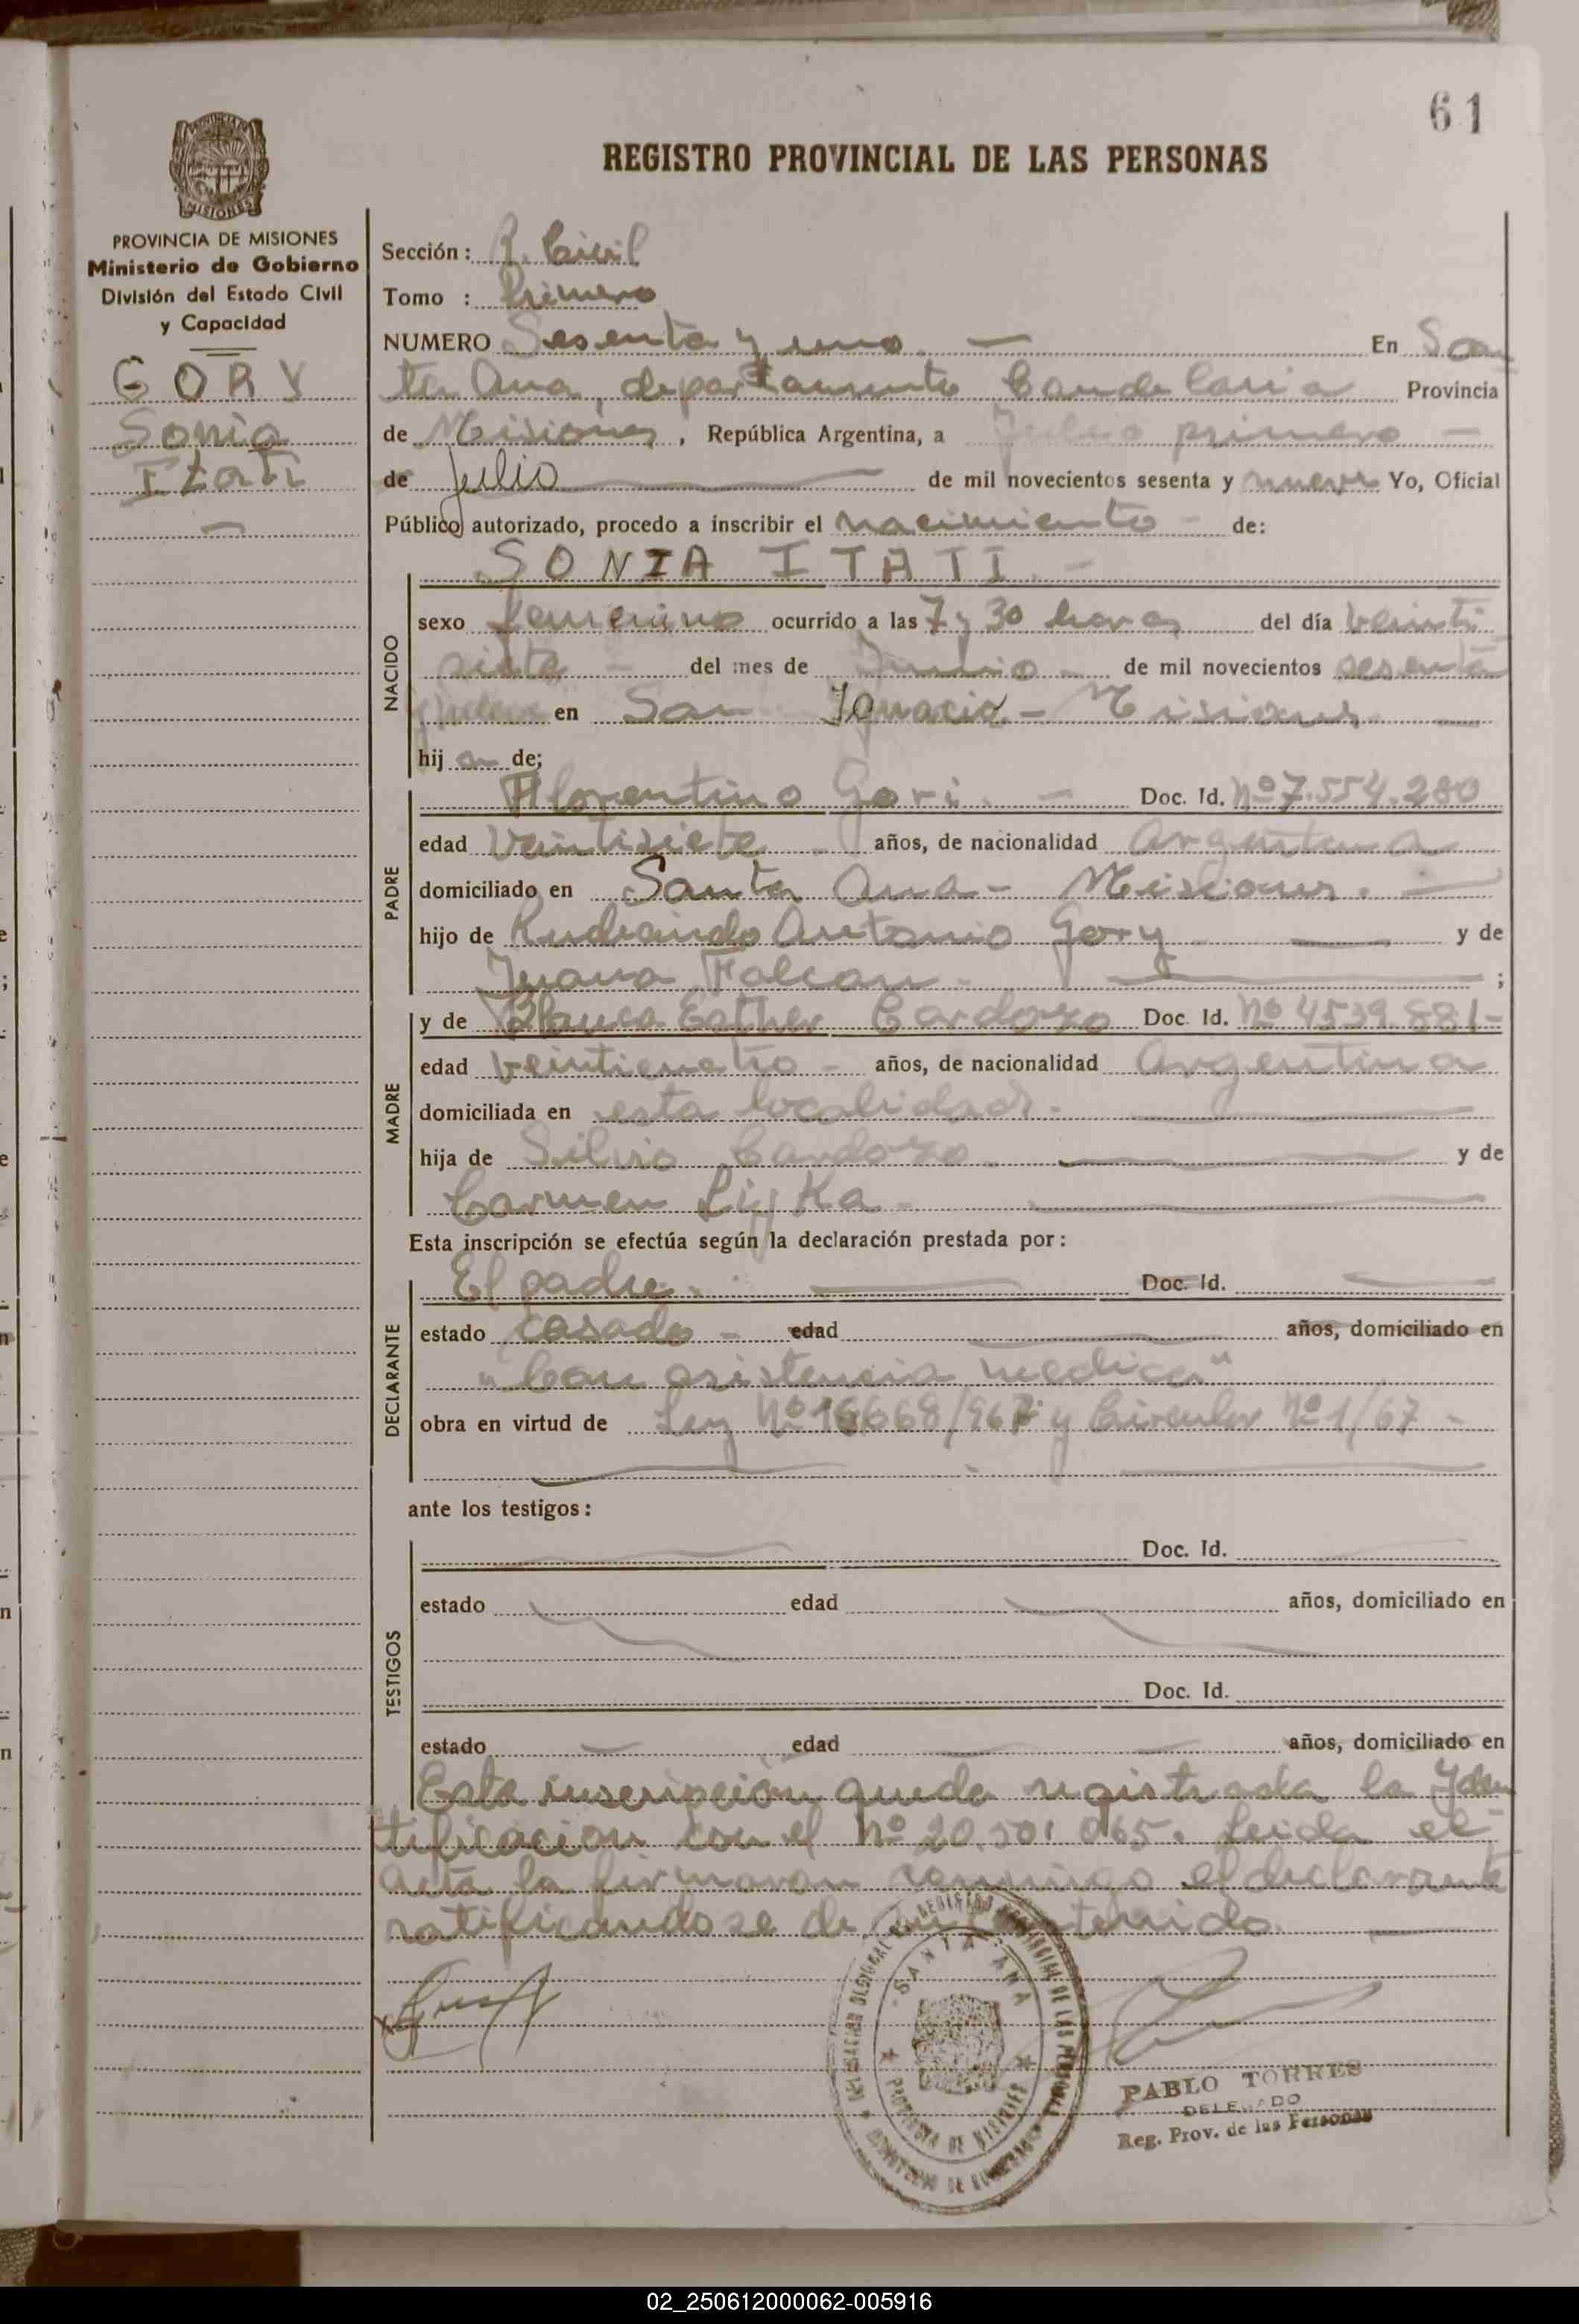 61
REGISTRO PROVINCIAL DE LAS PERSONAS
PROVINCIA DE MISIONES
MISIONES
PROVINCIA DE MISIONES
Ministerio de Gobierno
División del Estado Civil
y Capacidad
GORY
Sonia
Itati
Sección: R. Civil
Tomo : Primero
NUMERO Sesenta y uno — En San
ta Ana, departamento Candelaria Provincia
de Misiones, República Argentina, a primero —
de Julio de mil novecientos sesenta y nueve Yo, Oficial
Público autorizado, procedo a inscribir el nacimiento - de:
SONIA ITATI. -
NACIDO
sexo femenino ocurrido a las 7 y 30 horas del día veinti
siete - del mes de Junio - de mil novecientos sesenta
y nueve en San Ignacio - Misiones. —
hij a de;
PADRE
Florentino Gori. - Doc. Id. Nº 7.554.280
edad Veintisiete - años, de nacionalidad Argentina
domiciliado en Santa Ana - Misiones. —
hijo de Rudecindo Antonio Gory — y de
Juana Falcon - — ;
MADRE
y de Blanca Esther Cardozo Doc. Id. Nº 4539.881-
edad veinticuatro - años, de nacionalidad Argentina
domiciliada en esta localidad. -
hija de Silvio Cardozo — y de
Carmen -
Esta inscripción se efectúa según la declaración prestada por:
DECLARANTE
El padre. - Doc. Id.
estado casado - edad años, domiciliado en
"Con asistencia medica"
obra en virtud de Ley Nº 16668/967 y Circular Nº 1/67 -
ante los testigos:
TESTIGOS
Doc. Id.
estado edad años, domiciliado en
Doc. Id.
estado edad años, domiciliado en
Esta inscripción queda registrada la Iden
tificación con el Nº 20.501.065. Leida el
acta la firmaron conmigo el declarante
ratificandose de su contenido. —
DELEGACION REGIONAL DEL REGISTRO PROVINCIAL DE LAS PERSONAS
SANTA ANA
PROVINCIA DE MISIONES
MINISTERIO DE GOBIERNO
PABLO TORRES
DELEGADO
Reg. Prov. de las Personas
02_250612000062-005916